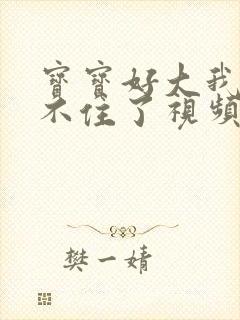 寶寶好大我
不住了視頻
樊一婧